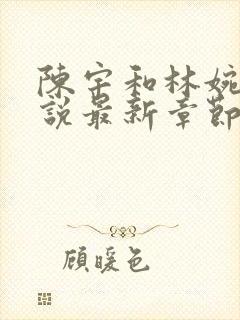 陳宇和林婉
說最新章節
顧暖色